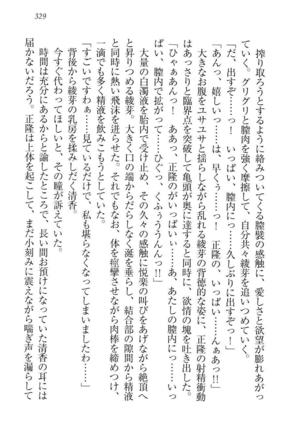 329
搾り取ろうとするように絡みついてくる膣襞の感触に、愛しさと欲望が膨れあがっ
ていく。グリグリと膣肉を強く摩擦して、自分共々綾芽を追いつめていく。
「だ、出すぞ……っ！　いっぱい、膣内に……久しぶりに出すぞっ！」
「あんっ、嬉しいっ……は、早くぅ……っ！　正隆の、いっぱい……んぁあぁっ！」
大きなお腹をユサユサと揺らしながら乱れる綾芽の背徳的な姿に、正隆の射精衝動
はあっさりと臨界点を突破して亀頭が奥に達すると同時に、欲情の塊を吐き出した。
「ひゃぁあんっ！　ああっ、正隆のがいっぱいぃ……っ！　あぁ、あたしの膣内に……いっぱ
い、膣内に拡がって……ひぐっ、くふぅううんんっ！」
大量の白濁液を胎内で受け止め、その久々の感触に悦楽の叫びをあげながら絶頂へ
と昇りつめる綾芽。大きく口の端からだらしなく涎を垂らし、結合部の隙間から精液
と同時に熱い飛沫を迸らせた。それでもなお、体を痙攣させながら肉棒を締めつけ、一
滴でも多く精液を飲みこもうとしていた。
「すごいですわぁ……見ているだけで、私も堪らなくなってしまいましたわ……」
背後から綾芽の乳房を揉みしだく清香。
今すぐ代わってほしいと、その瞳が訴えていた。
時間は充分にあるからと諭したところで、長い間お預けになっていた清香の耳には
届かないだろう。正隆は上体を起こして、まだ小刻みに震えながら喘ぎ声を漏らして